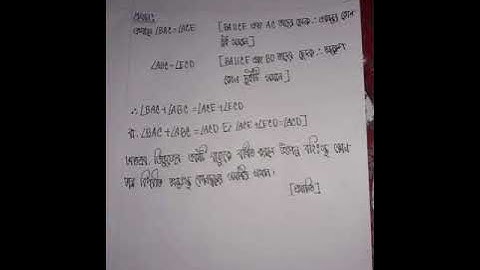 প্রমাণ:
∠BAC = ∠ACE [BA∥CE এবং AC তাদের ছেদক ∴ একান্তর কোণ
সমান]
∠ABC = ∠ECD [BA∥CE এবং BD তাদের ছেদক ∴ অনুরূপ
কোণ দুইটি সমান]
∴ ∠BAC + ∠ABC = ∠ACE + ∠ECD
বা ∠BAC + ∠ABC = ∠ACD [∠ACE + ∠ECD = ∠ACD]
ত্রিভুজের একটি বাহুকে বর্ধিত করলে উৎপন্ন বহিঃস্থ কোণ
বিপরীত অন্তঃস্থ কোণদ্বয়ের সমষ্টির সমান।